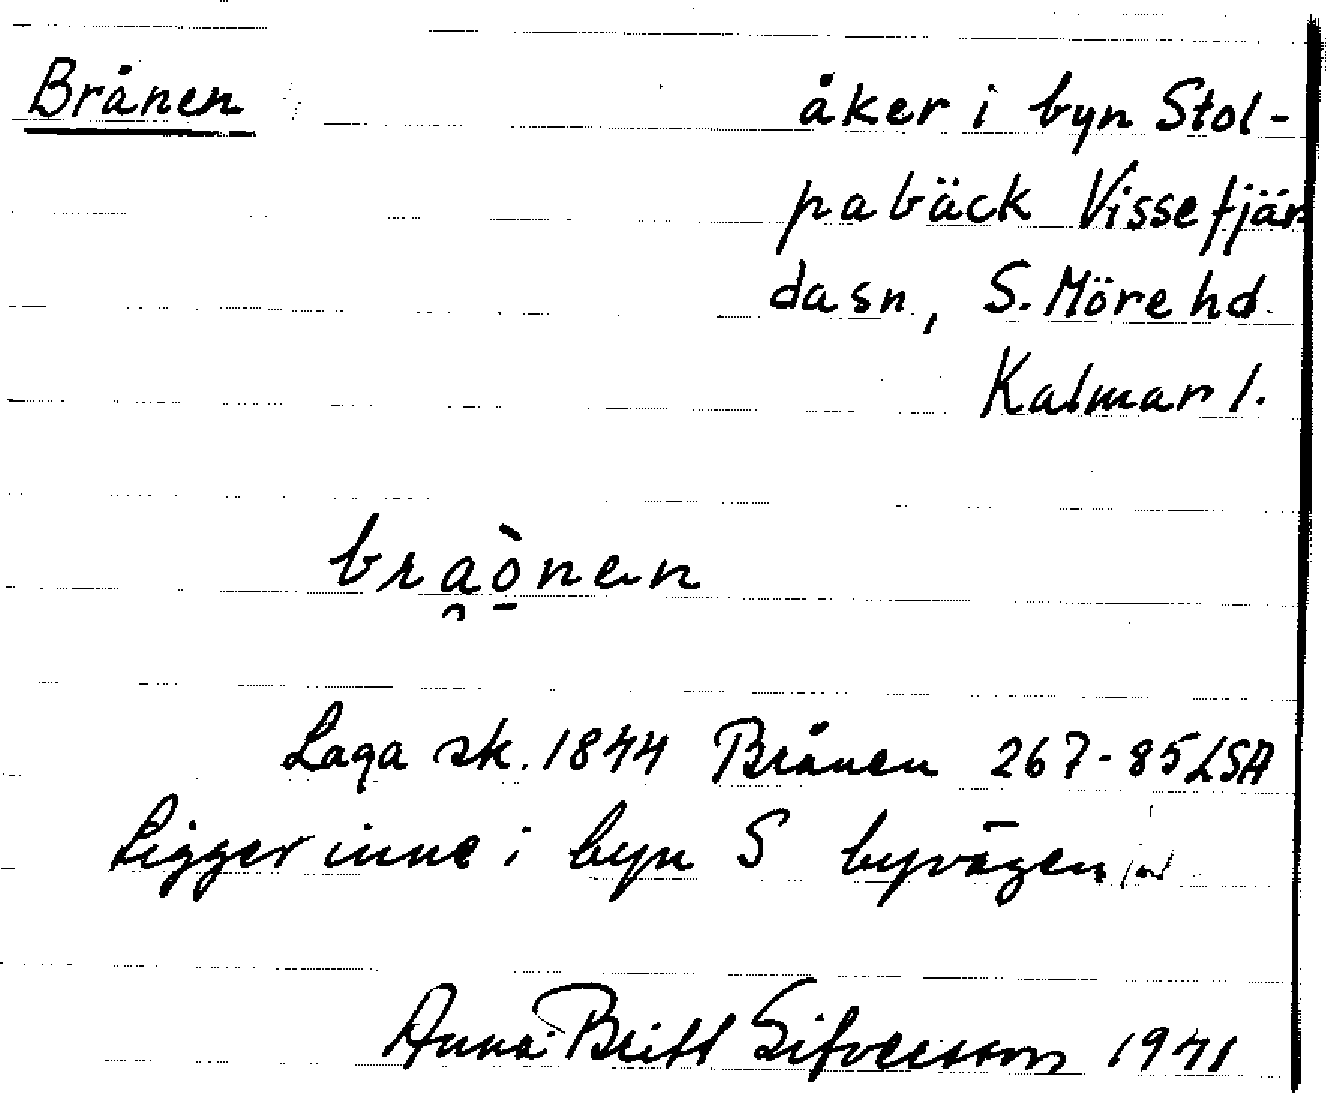 Brånen åker i byn Stol-
pabäck Vissefjär
dasn, S. Möre hd.
Kalmar l.
bra̯ò̠nen
Laga sk. 1844 Brånen 267-85 LSA
Ligger inne i byn S byvägen
Anna-Britt Sifversson 1941